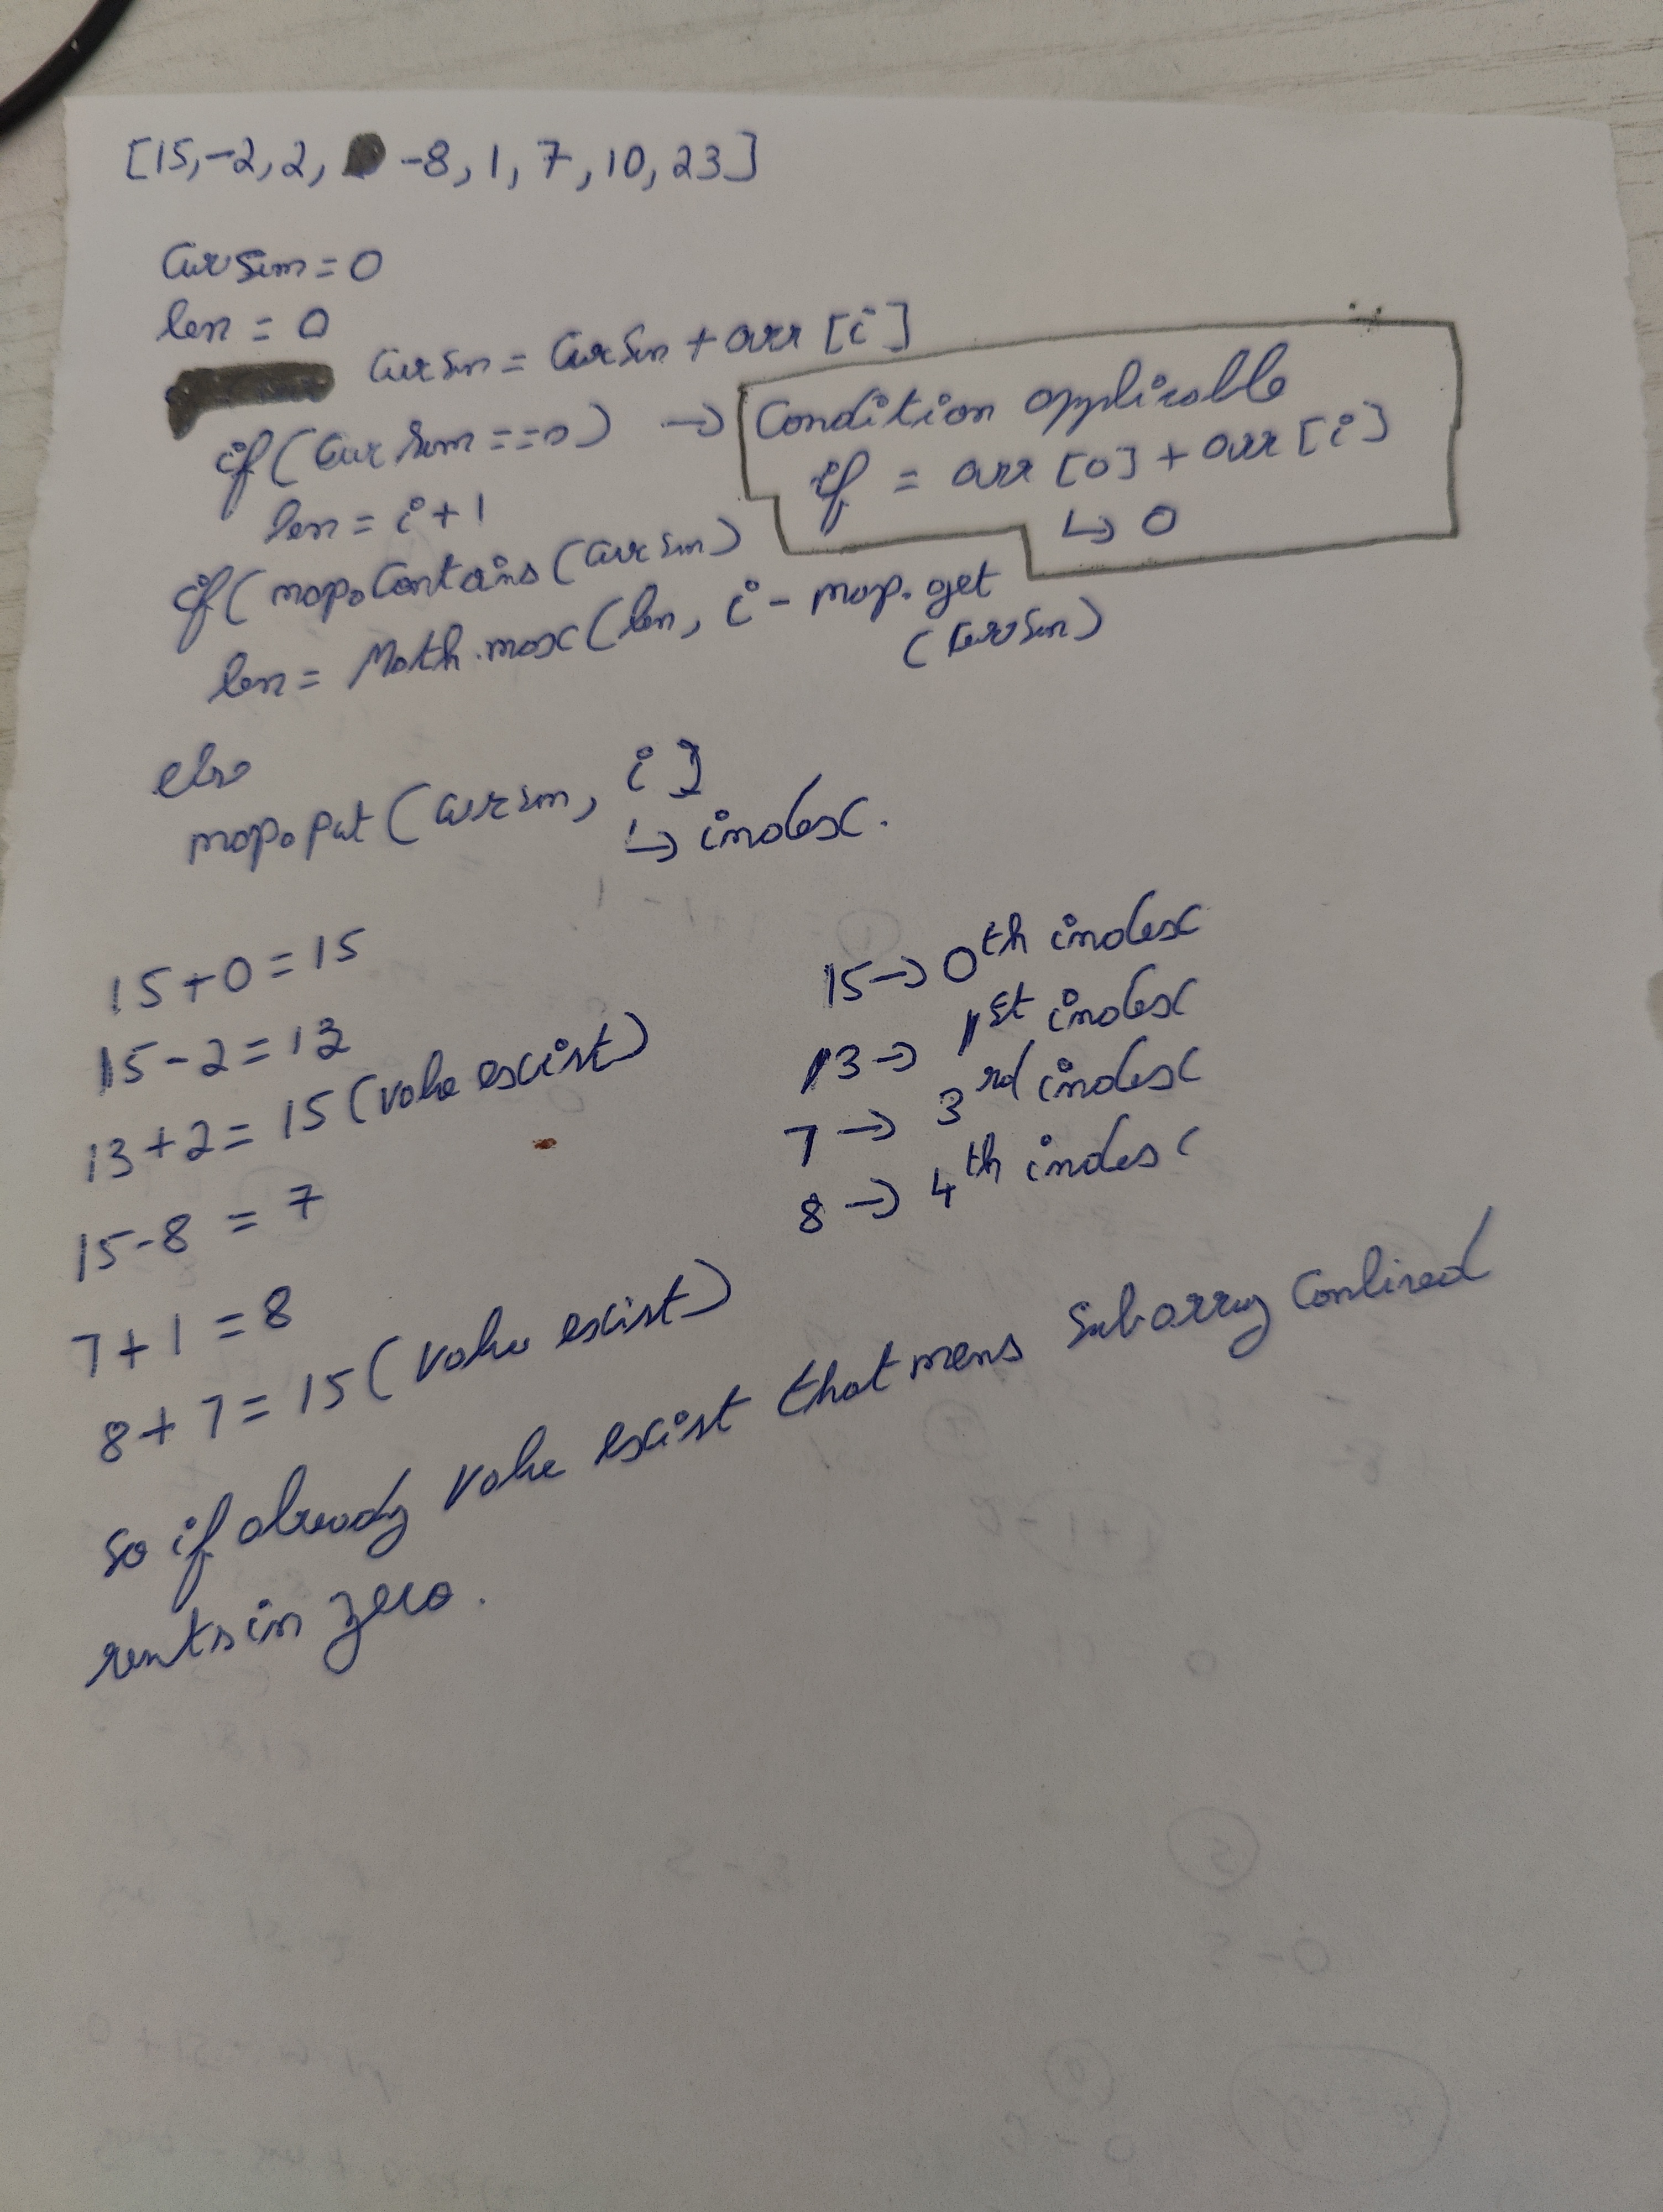 [15,-2,2, -8,1,7,10,23]
Cursum=0
len = 0
cursm = Cursm + arr [i]
if(Cursum==0) → Condition applicable
if = arr [0] + arr [i]
↳ 0
len = i+1
if(map.Contains(cursm)
len = Math.max(len, i - map.get
(Cursm)
else
map.put(cursm, i]
↳ index.
15+0=15
15-2=13
13+2=15(value excist)
15-8 = 7
7+1=8
8+7=15(value excist)
15→0th index
13→ 1st index
7→ 3rd index
8→ 4th index
so if already value excist that mens Subarray
in zero.